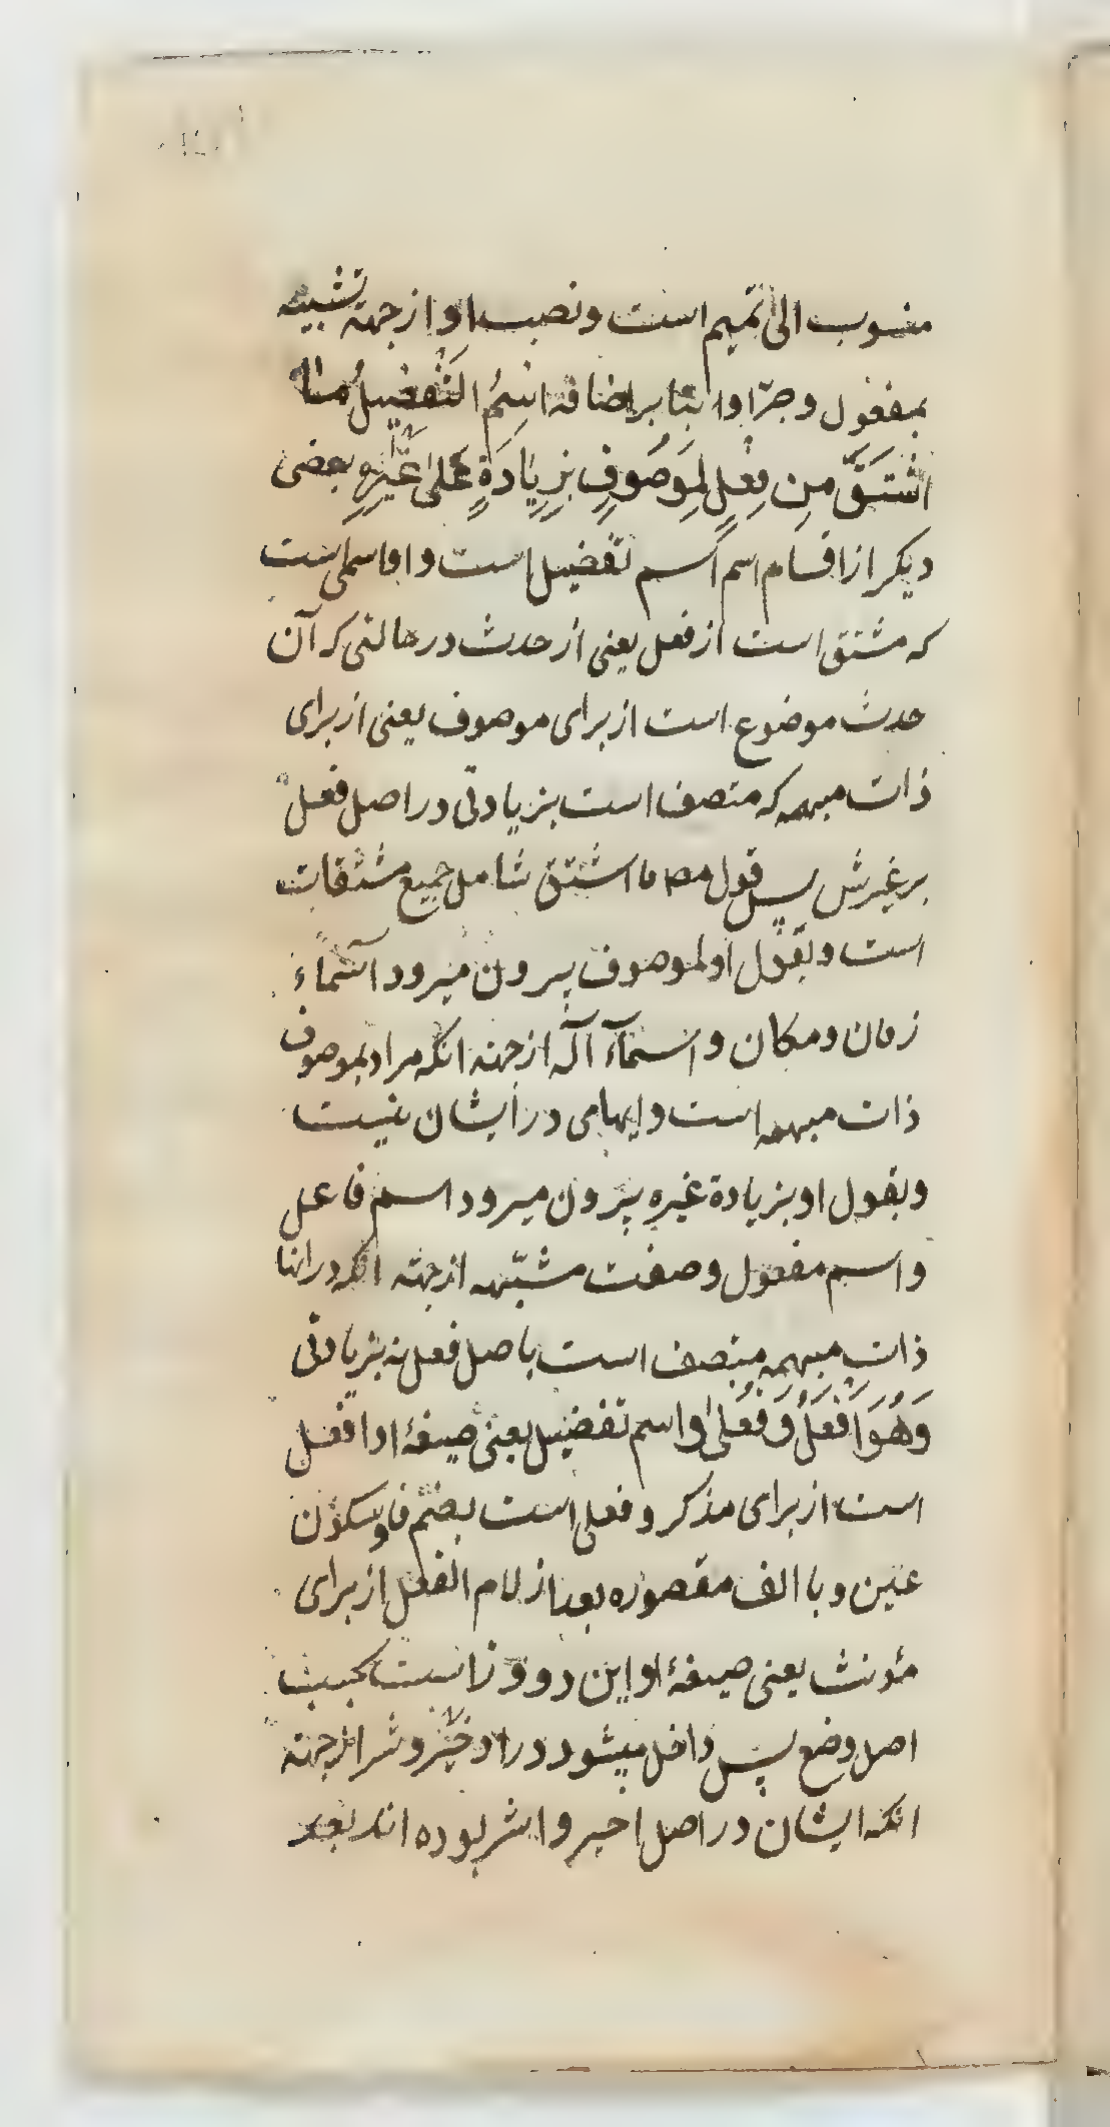 منسوب الی تمیم است و نصب او از جهة تشبیه
بمفعول و جرّ او بنا بر اضافه اِسْمُ التَّفْضیلُ ما
اشْتَقَّ مِن فِعْلٍ لِمَوصَوفٍ بِزِیادَةٍ عَلیٰ غَیْرِهِ بعضی
دیکر از اقسام اسم اسم تفضیل است و او اسمی است
که مشتق است از فعل یعنی از حدث در حالتی که آن
حدث موضوع است از برای موصوف یعنی از برای
ذات مبهمه که متصف است بزیادتی در اصل فعل
بر غیرش پس قول مص ما اشتق شامل جمیع مشتقات
است و بقول او لموصوف بیرون میرود اسماء
زمان و مکان و اسمآء آله از جهة انکه مراد بموصوف
ذات مبهمه است و ابهامی در ایشان نیست
و بقول او بزیادة غیره بیرون میرود اسم فاعل
و اسم مفعول و صفت مشبّهه از جهة انکه در انها
ذات مبهمه متصف است باصل فعل نه بزیادتی
وَ هُوَ اَفْعَلُ وَ فُعْلیٰ و اسم تفضیل یعنی صیغهٔ او افعل
است از برای مذکر و فعلی است بضم فا و سکون
عین و با الف مقصوره بعد از لام الفعل از برای
مؤنث یعنی صیغهٔ او این دو وزنست بحسب
اصل وضع پس داخل میشود در او خیر و شر از جهة
انکه ایشان در اصل اخیر و اشر بوده اند بعد